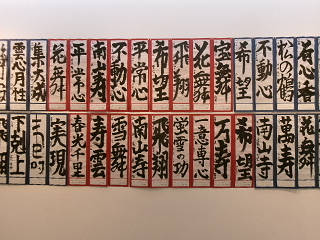 有心者
松の鶴
不動心
希望
宝舞
花舞
飛翔
希望
平常心
不動心
南山寿
平常心
花舞
集大成
雲心月性
花舞
萬寿
南山寺
希望
万寿
一意専心
蛍雪の功
飛翔
南山寿
雪舞
寿雲
喜光千里
実現
下剋上
飛翔